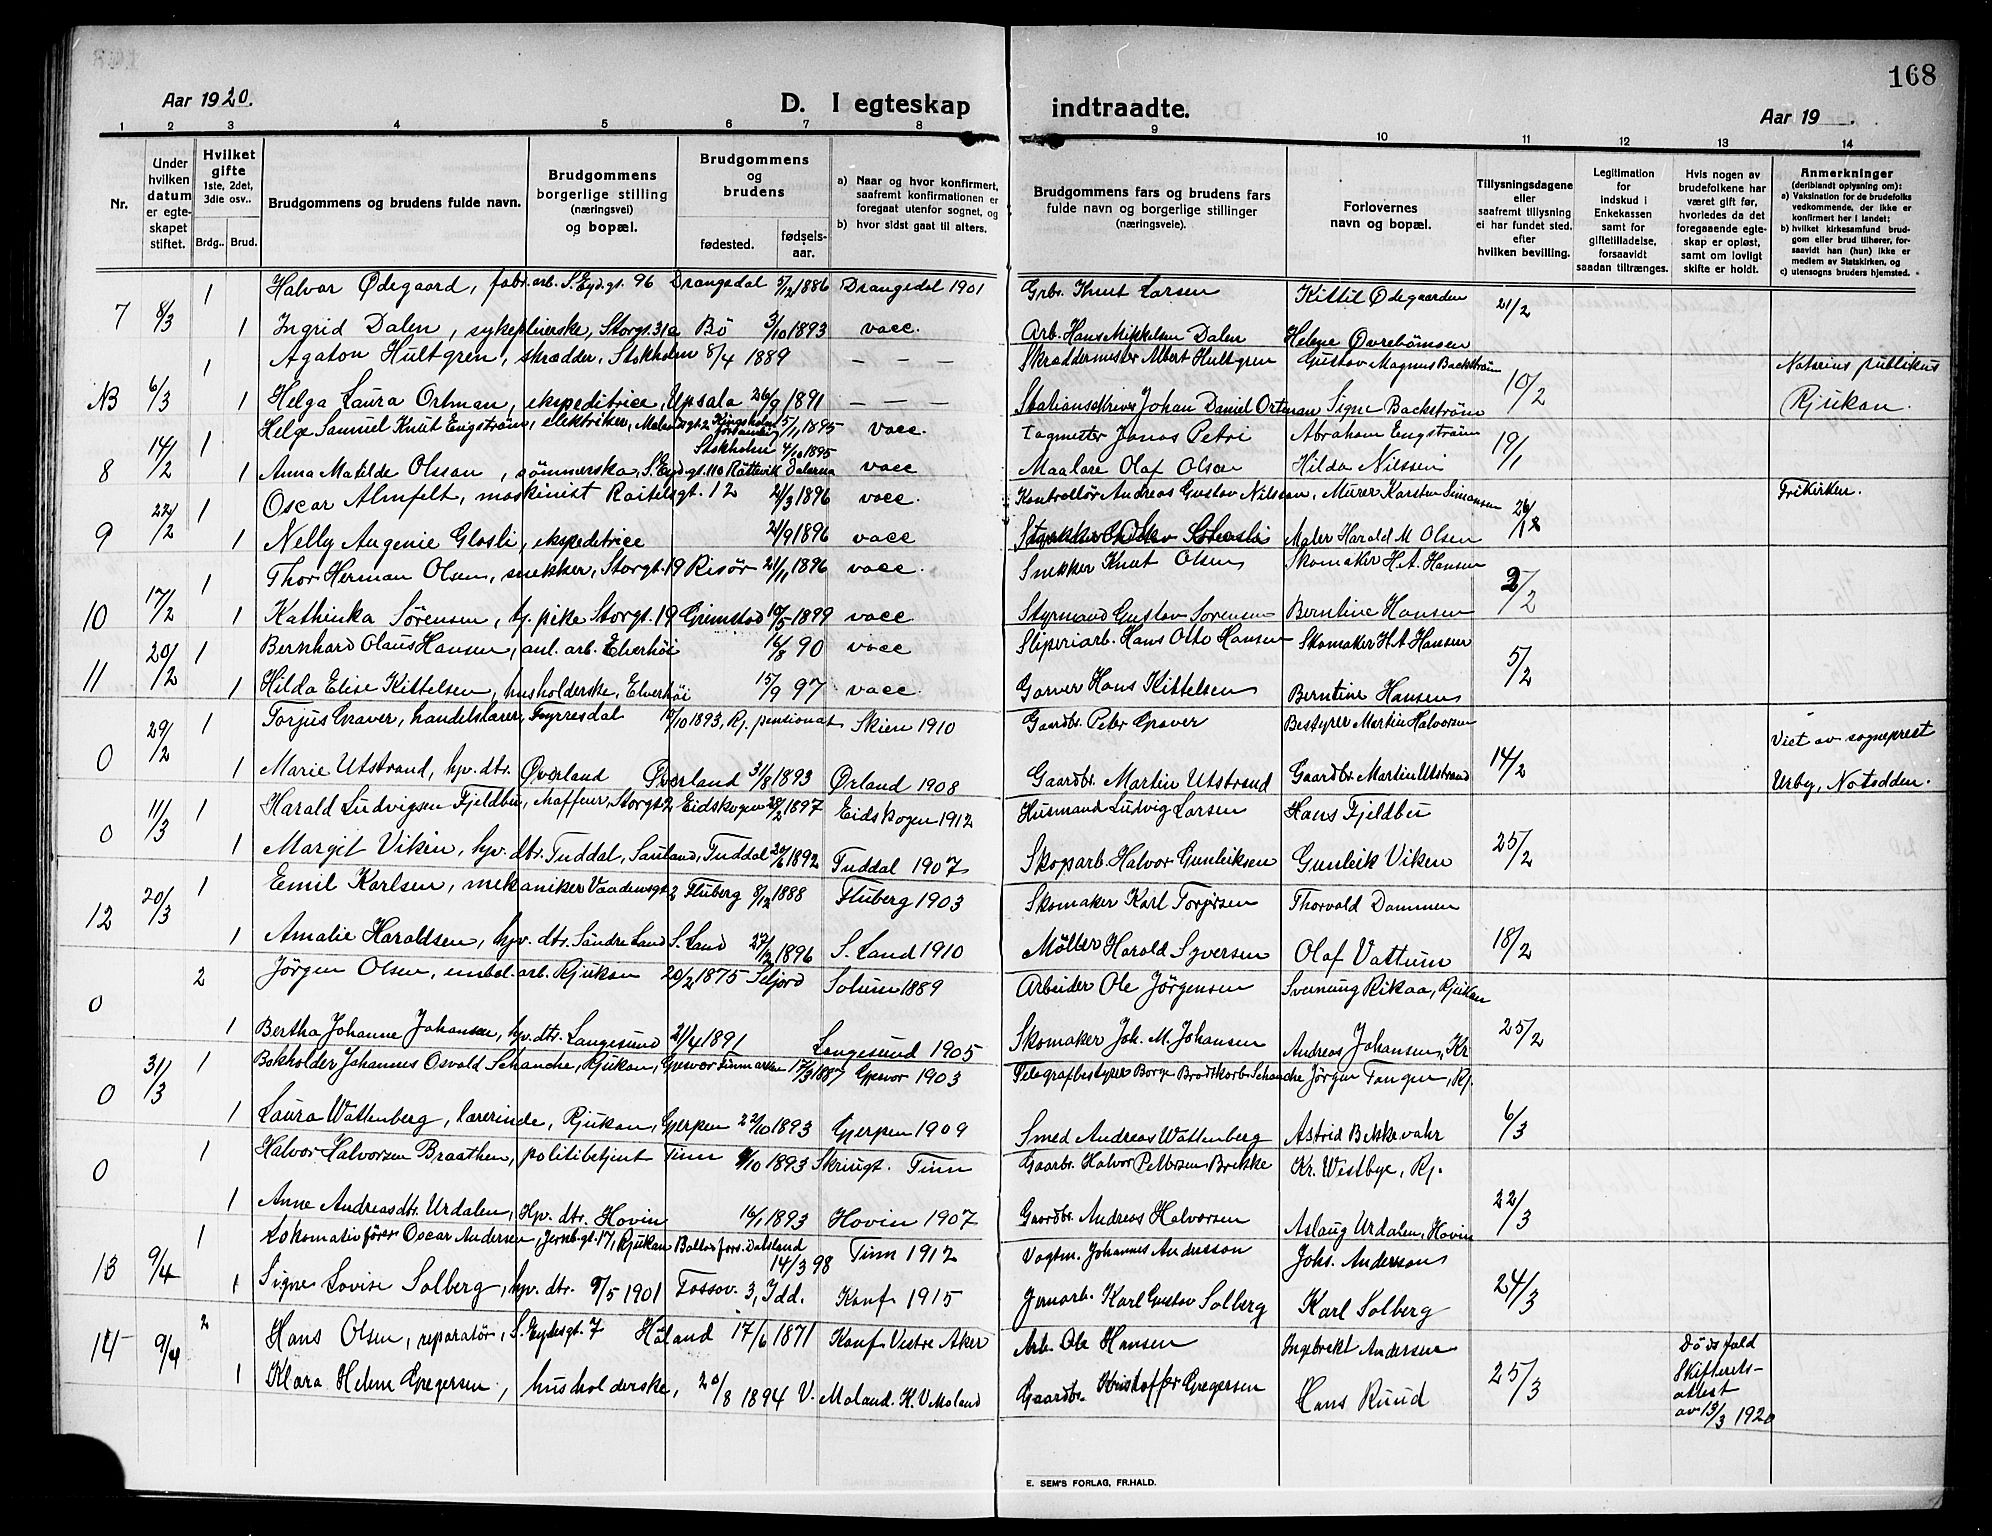 168
Aar 1920.
D. I egteskap indtraadte.
Aar 19 .
1 2 3 4 5 6 7 8 9 10 11 12 13 14
Nr.
Under hvilken datum er egteskapet stiftet.
Hvilket gifte 1ste, 2det, 3die osv..
Brdg.. Brud.
Brudgommens og brudens fulde navn.
Brudgommens borgerlige stilling (næringsvei) og bopæl.
Brudgommens og brudens
fødested. fødselsaar.
a) Naar og hvor konfirmert, saafremt konfirmationen er foregaat utenfor sognet, og
b) hvor sidst gaat til alters.
Brudgommens fars og brudens fars fulde navn og borgerlige stillinger (næringsveie).
Forlovernes navn og bopæl.
Tillysningsdagene eller saafremt tillysning ei har fundet sted, efter hvilken bevilling.
Legitimation for Indskud i Enkekassen samt for giftetilladelse, forsaavidt saadan tiltrænges.
Hvis nogen av brudefolkene har været gift før, hvorledes da det foregaaende egteskap er opløst, samt om lovligt skifte er holdt.
Anmerkninger (deriblandt oplysning om):
a) Vaksination for de brudefolks vedkommende, der ikke er konfirmert her i landet;
b) hvilket kirkesamfund brudgom eller brud tilhører, forsaavidt han (hun) ikke er medlem av Statskirken, og
c) utensogns bruders hjemsted.
7 8/3 1 Halvor Ødegaard, fabr. arb. S. Eyd.gt. 96 Drangedal 5/12 1886 Drangedal 1901 Grbr. Knut Larsen Kittil Ødegaarden 21/2
1 Ingrid Dalen, sykepleierske, Storgt. 31a Bø 3/10 1893 vacc. Arb. Hans Mikkelsen Dalen Helene Øvrebömsen
NB 6/3 1 Agaton Hultgren, skrædder, Stokholm 8/4 1889 — — — Skræddermester Albert Hultgren Gustav Magnus Backström 10/2 Notarius publikus
1 Helga Laura Ortman, ekspeditrice, Upsala 26/9 1891 — — — Stationsskriver Johan Daniel Ortman Signe Backström Rjukan.
8 14/2 1 Helge Samuel Knut Engström, elektriker, Stokholm 5/1 1895 vacc. Tagmester Jonas Petri Abraham Engström 19/1
1 Anna Matilde Olsson, sömmerska, S. Eyd.gt. 110 Rättevik Dalerna 4/10 1895 vacc Maalare Olaf Olsen Hilda Nilssen
9 22/2 1 Oscar Almfelt, maskinist 2/3 1896 vacc. Kontrollör Andreas Gustav Nilsson, Murer Karsten Simonsen Frikirken.
1 Nelly Augenie Glosli, ekspeditrice 2/9 1896 vacc Maler Harald M Olsen
10 17/2 1 Thor Herman Olsen, snekker, Storgt. 19 Risör 21/11 1896 vacc. Snekker Knut Olsen Skomaker H. A. Hansen 2/2
1 Kathinka Sörensen, tj. pike Storgt. 19 Grimstad 10/5 1899 vacc Styrmand Gustav Sorensen Berntine Hansen
11 20/2 1 Bernhard Olaus Hansen, anl. arb. Elverhöi 16/8 90 vacc Sliperiarb. Hans Otto Hansen Skomaker H. A Hansen 5/2
1 Hilda Elise Kittelsen, husholderske, Elverhöi 15/9 97 vacc. Garver Hans Kittelsen Berntine Hansen
0 29/2 1 Torjus Graver, handelslærer, Fyrresdal 10/10 1893, Rj. pensionat Skien 1910 Gaardbr. Peter Graver Bestyrer Martin Halvorsen 14/2 Viet av sogneprest
1 Marie Utstrand, hjv. dtr. Øverland Øverland 31/8 1893 Ørland 1908 Gaardbr. Martin Utstrand Gaardbr. Martin Utstrand Urby, Notodden.
0 11/3 1 Harald Ludvigsen Fjeldbu, chaffeur, Storgt. 2 Eidskogen 28/2 1897 Eidskogen 1912 Husmand Ludvig Larsen Hans Fjeldbu 25/2
1 Margit Viken, hjv. dtr. Tuddal, Sauland, Tuddal 20/6 1892 Tuddal 1907 Skogarb. Halvor Gunleiksen Gunleik Viken
12 20/3 1 Emil Karlsen, mekaniker Vaadensgt. 2 Fluberg 8/12 1888 Fluberg 1903 Skomaker Karl Torgersen Thorvald Dammen 18/2
1 Amalie Haraldsen, hjv. dtr. Söndre Land S. Land 27/12 1896 S. Land 1910 Möller Harald Syversen Olaf Vattum
0 2 Jörgen Olsen, embal. arb. Rjukan 20/2 1875 Seljord Solum 1889 Arbeider Ole Jörgensen Sveinung Rikaa, Rjukan 25/2
1 Bertha Johanne Johansen, hjv. dtr. Langesund 21/4 1891 Langesund 1905 Skomaker Joh. M. Johansen Andreas Johansen, Kr.
0 31/3 1 Bokholder Johannes Osvald Schanche, Rjukan, Gjesvær Finmarken 17/3 1887 Gjesvær 1903 Telegrafbestyrer Borge Brodtkorb Schanche Jörgen Tangen, Rj. 6/3
1 Laura Wattenberg, lærerinde, Rjukan, Gjerpen 22/10 1893 Gjerpen 1909 Smed Andreas Wattenberg Astrid Bekkevahr
0 1 Halvor Halvorsen Braathen, politibetjent Tinn 9/10 1893 Tinn Gaardbr. Halvor Pettersen Brekke Kr. Westbye, Rj. 22/3
1 Anne Andreasdtr. Urdalen, Hjv. dtr. Hovin 16/1 1893 Hovin 1907 Gaardbr. Andreas Halvorsen Aslaug Urdalen, Hovin
13 9/4 1 Lokomotivförer Oscar Andersen, Jernb.gt. 17, Rjukan Dalsland 14/3 98 Tinn 1912 Vogtm. Johannes Andersson Johs. Andersson 24/3
1 Signe Lovise Solberg, hjv. dtr. 9/5 1901 Fossov. 3, Idd. Konf. 1915 Jernarb. Karl Gustav Solberg Karl Solberg
14 9/4 2 Hans Olsen, reparatör, S. Eydesgt. 7 Höland 17/6 1871 Konf. Vestre Aker Arb. Ole Hansen Ingebrekt Andersen 25/3 Dödsfald Skifteretsattest av 13/3 1920
1 Klara Helene Gregersen, husholderske, 20/8 1894 V. Moland. K. V. Moland Gaardbr. Kristoffer Gregersen Hans Ruud
E. SEM'S FORLAG, FR.HALD.